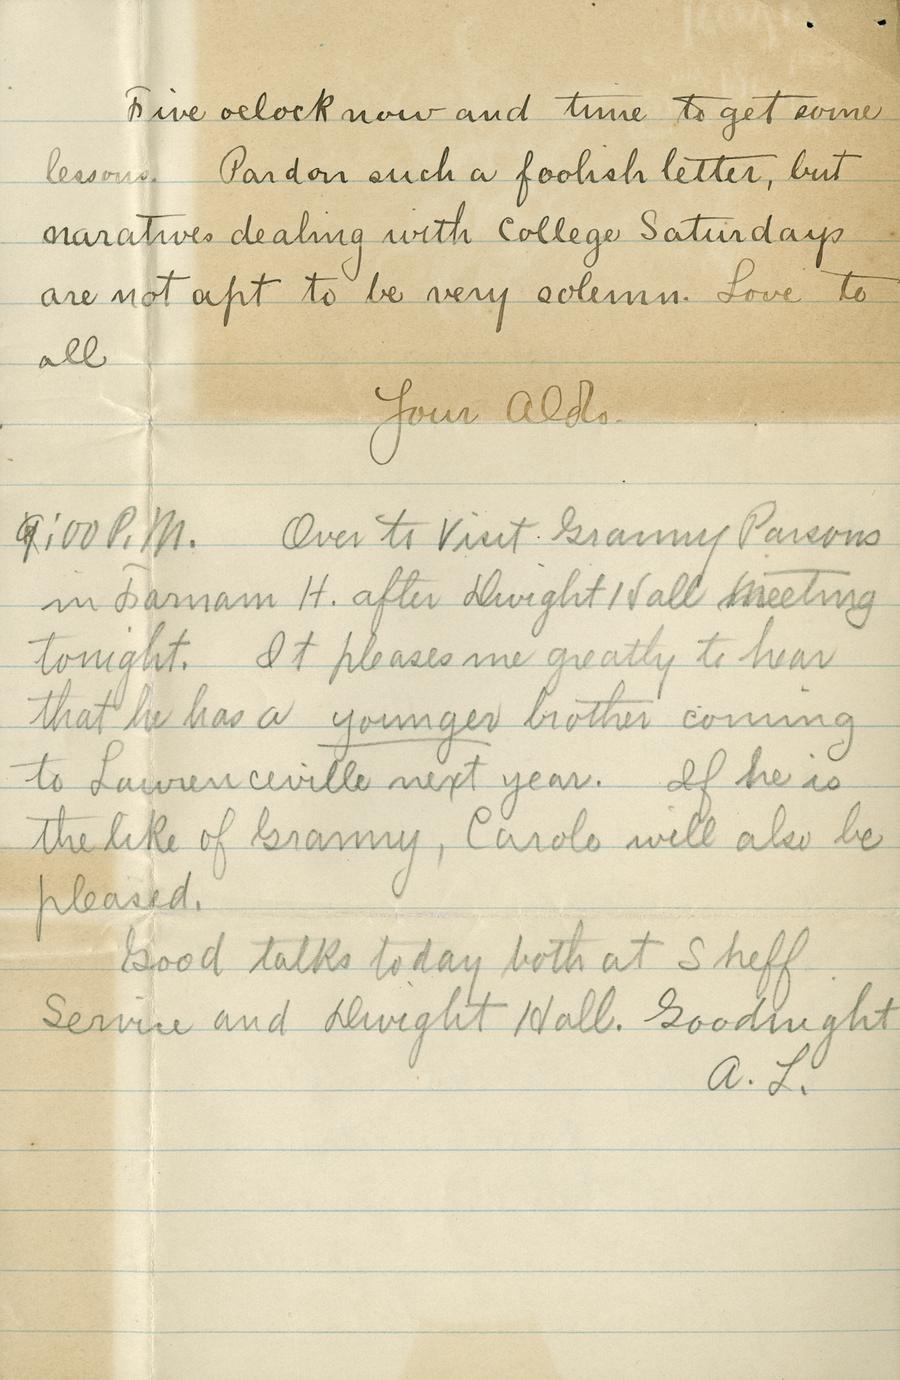 Five oclock now and time to get some
lessons. Pardon such a foolish letter, but
naratives dealing with College Saturdays
are not apt to be very solemn. Love to
all
Your Aldo.
9:00 P.M. Over to Visit Granny Parsons
in Farnam H. after Dwight Hall meeting
tonight. It pleases me greatly to hear
that he has a younger brother coming
to Lawrenceville next year. If he is
the like of Granny, Carolo will also be
pleased.
Good talks today both at Sheff
Service and Dwight Hall. Goodnight
A. L.